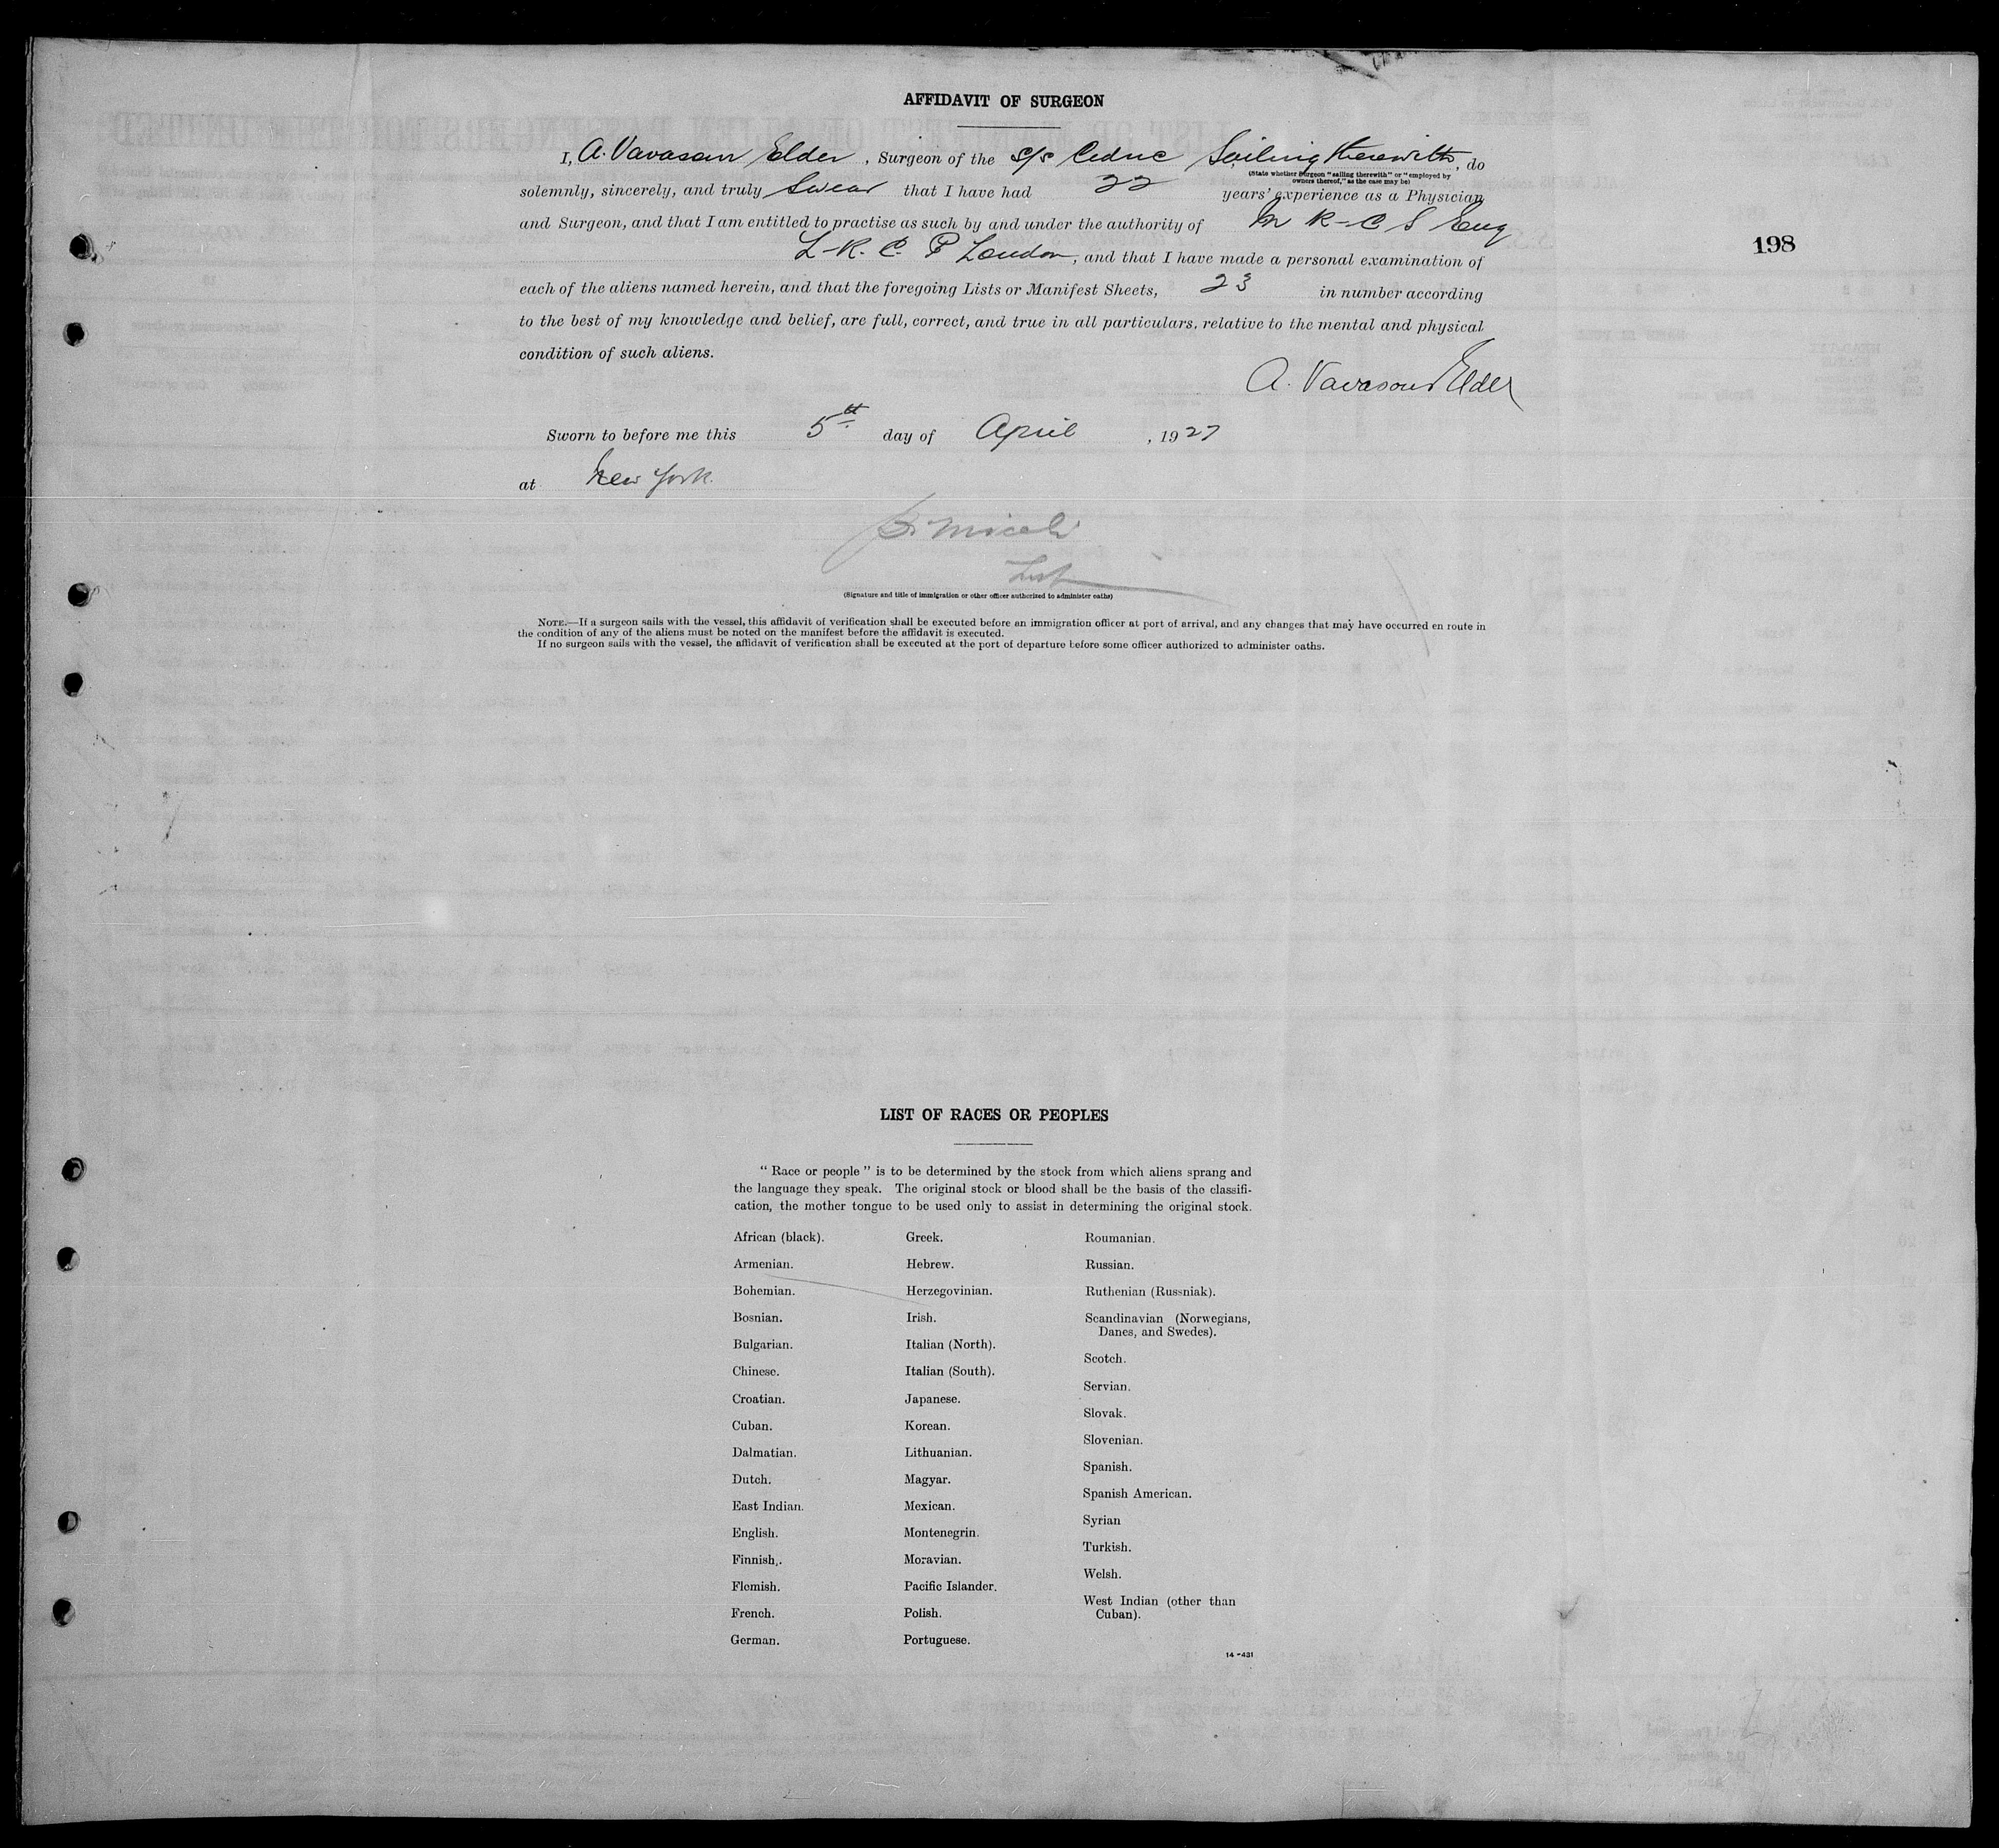 AFFIDAVIT OF SURGEON
I, A. Vavasour Elder, Surgeon of the s/s Cedric Sailing therewith, do
(State whether Surgeon "sailing therewith" or "employed by
owners thereof," as the case may be)
solemnly, sincerely, and truly Swear that I have had 22 years' experience as a Physician
and Surgeon, and that I am entitled to practise as such by and under the authority of M R C S Eng
198
L. R. C. P London, and that I have made a personal examination of
each of the aliens named herein, and that the foregoing Lists or Manifest Sheets, 23 in number according
to the best of my knowledge and belief, are full, correct, and true in all particulars, relative to the mental and physical
condition of such aliens.
A. Vavasour Elder
Sworn to before me this 5th day of April, 1927
at New York.
(Signature and title of immigration or other officer authorized to administer oaths)
NOTE.—If a surgeon sails with the vessel, this affidavit of verification shall be executed before an immigration officer at port of arrival, and any changes that may have occurred en route in
the condition of any of the aliens must be noted on the manifest before the affidavit is executed.
If no surgeon sails with the vessel, the affidavit of verification shall be executed at the port of departure before some officer authorized to administer oaths.
LIST OF RACES OR PEOPLES
"Race or people" is to be determined by the stock from which aliens sprang and
the language they speak. The original stock or blood shall be the basis of the classifi-
cation, the mother tongue to be used only to assist in determining the original stock.
African (black).
Armenian.
Bohemian.
Bosnian.
Bulgarian.
Chinese.
Croatian.
Cuban.
Dalmatian.
Dutch.
East Indian.
English.
Finnish.
Flemish.
French.
German.
Greek.
Hebrew.
Herzegovinian.
Irish.
Italian (North).
Italian (South).
Japanese.
Korean.
Lithuanian.
Magyar.
Mexican.
Montenegrin.
Moravian.
Pacific Islander.
Polish.
Portuguese.
Roumanian.
Russian.
Ruthenian (Russniak).
Scandinavian (Norwegians,
Danes, and Swedes).
Scotch.
Servian.
Slovak.
Slovenian.
Spanish.
Spanish American.
Syrian
Turkish.
Welsh.
West Indian (other than
Cuban).
14-431